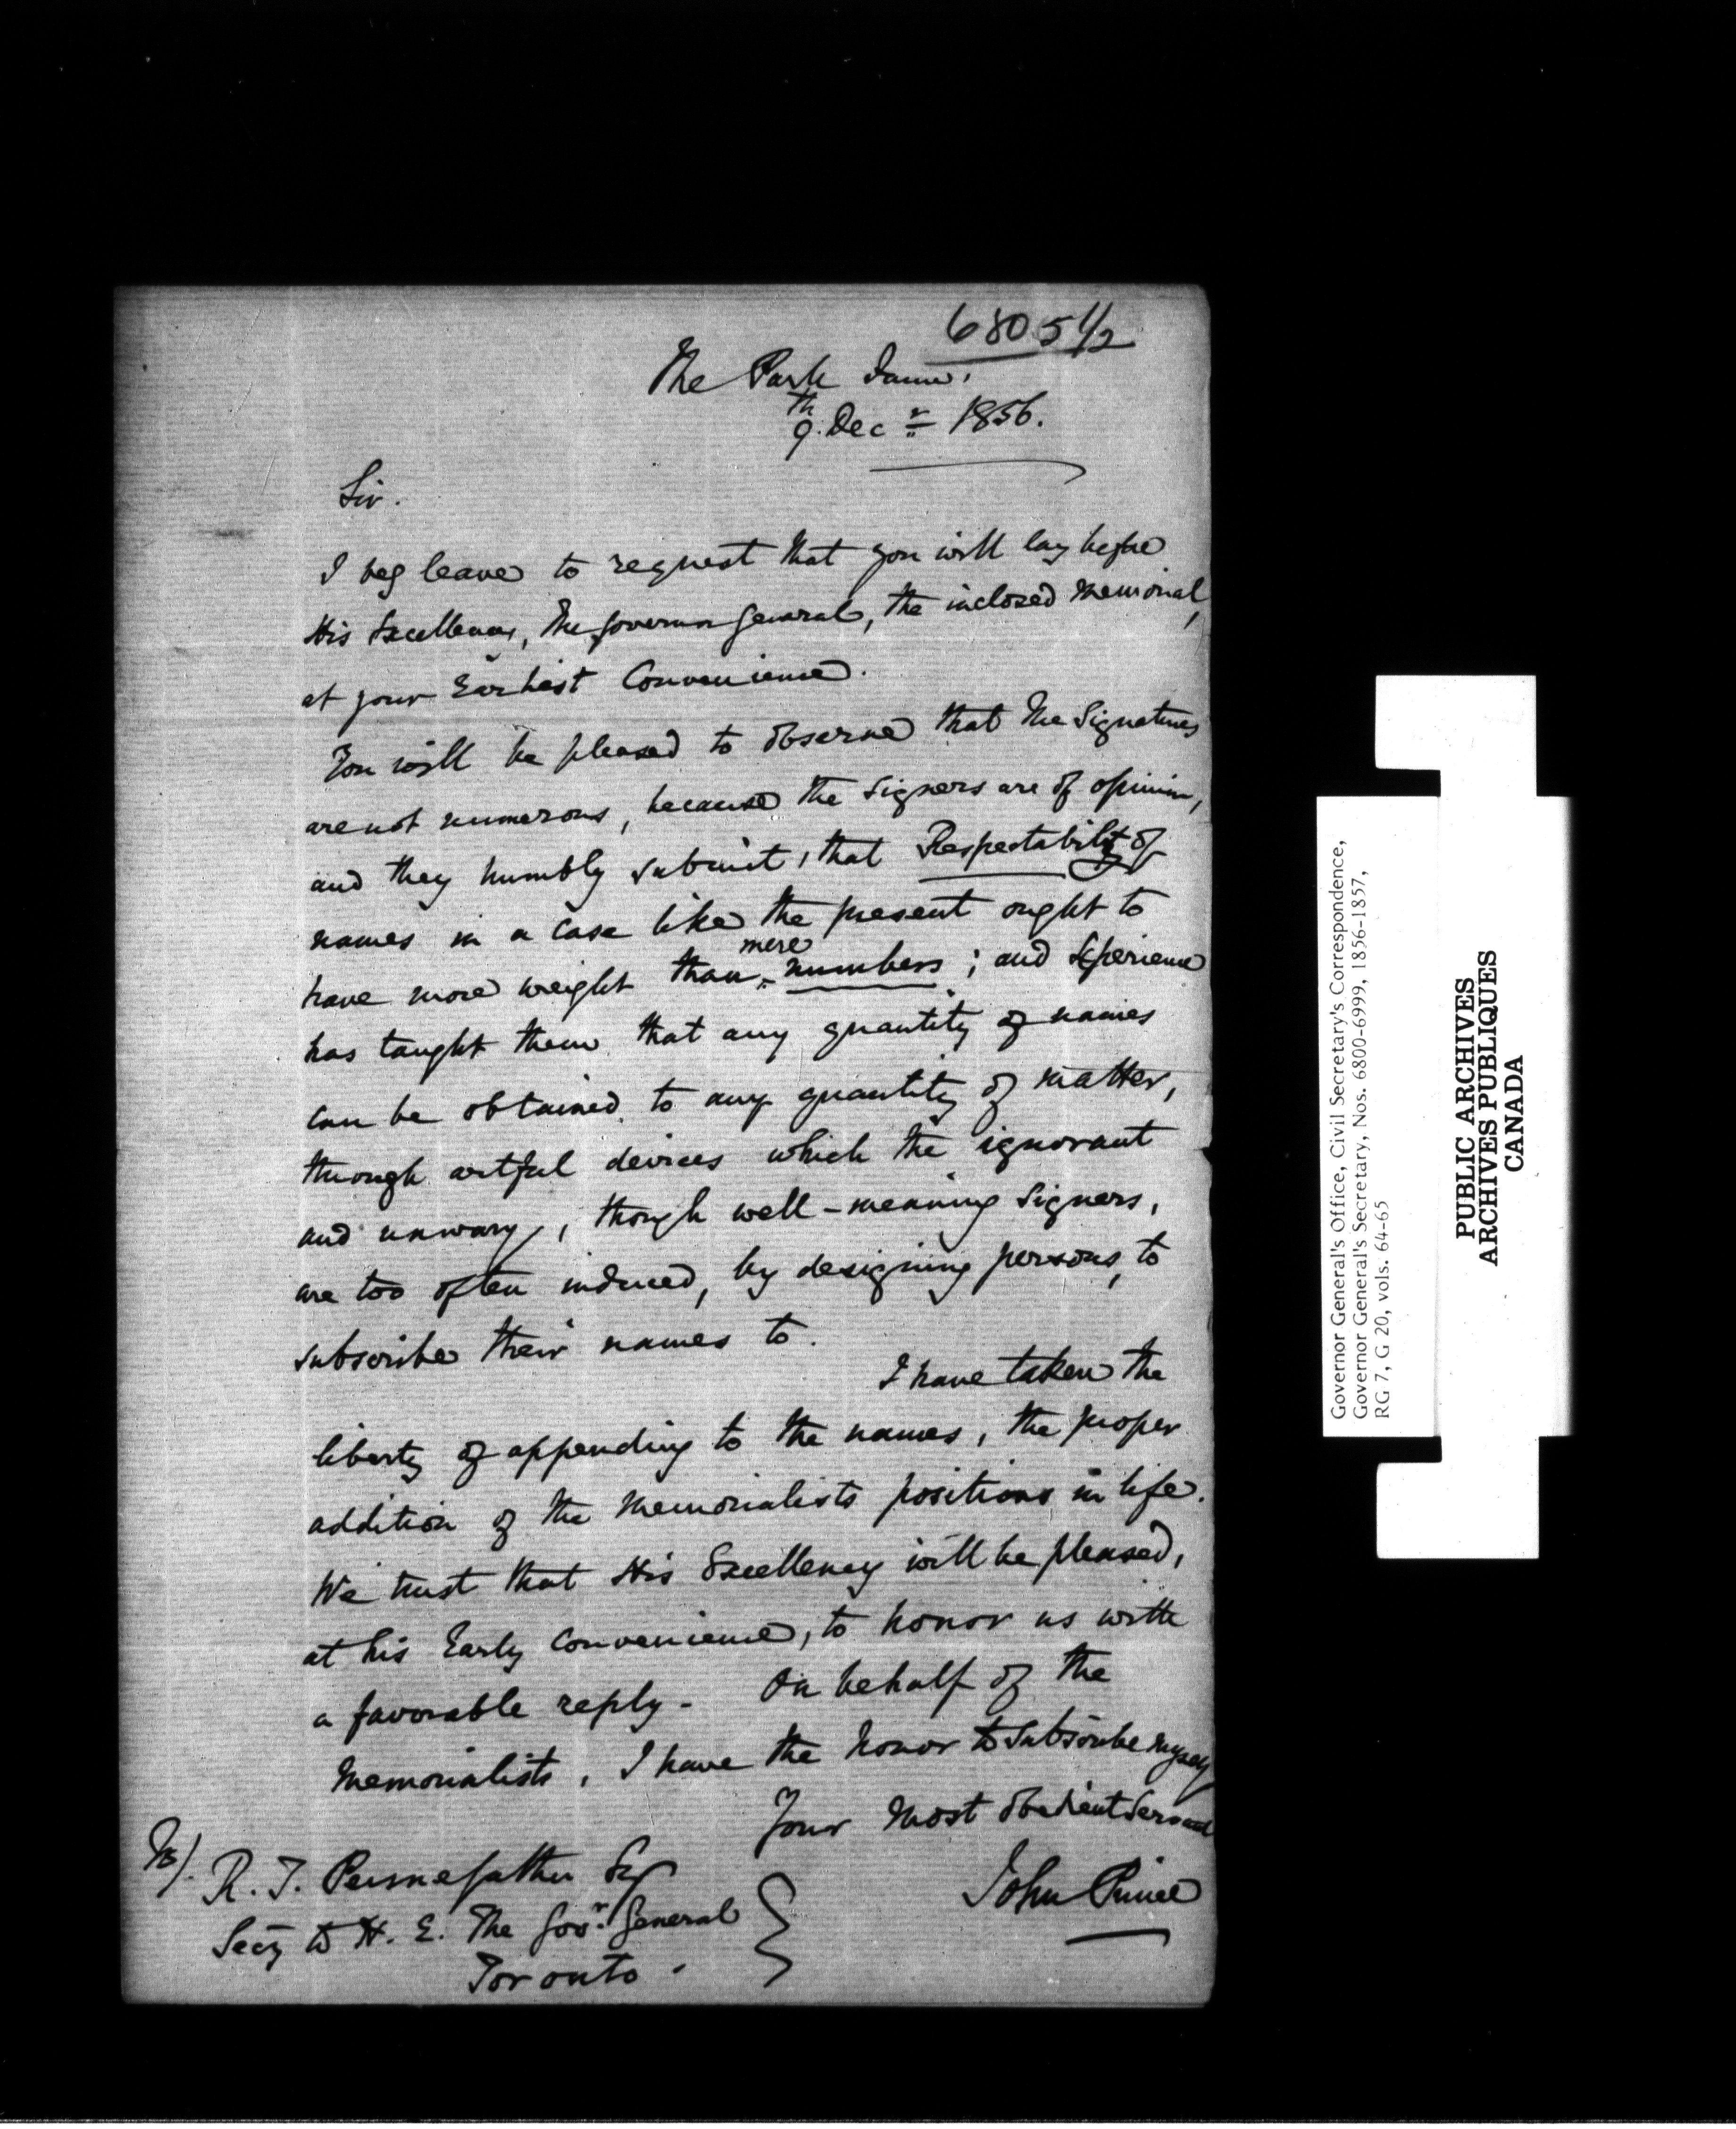 6805 1/2
The Park Farm.
9th. Decr 1856.
Sir.
I beg leave to request that you will lay before
His Excellency, The Governor General, the inclosed Memorial,
at your Earliest Convenience.
You will be pleased to observe that the Signatures
are not numerous, because the Signers are of opinion,
and they humbly submit, that Respectability of
names in a Case like the present ought to
have more weight than mere numbers; and Experience
has taught them that any quantity of names
can be obtained to any quantity of matter,
through artful devices which the ignorant
and unwary, though well-meaning Signers,
are too often induced, by designing persons, to
subscribe their names to.
I have taken the
liberty of appending to the names, the proper
addition of the Memorialists positions in life.
We trust that His Excellency will be pleased,
at his Early Convenience, to honor us with
a favorable reply - On behalf of the
Memorialists, I have the honor to subscribe myself
Your Most Obedient Servant
John Prince
To/.
R. T. Pennefather Esq
Secy to H. E. The Govr. General
Toronto.
Governor General's Office, Civil Secretary's Correspondence,
Governor General's Secretary, Nos. 6800-6999, 1856-1857,
RG 7, G 20, vols. 64-65
PUBLIC ARCHIVES
ARCHIVES PUBLIQUES
CANADA